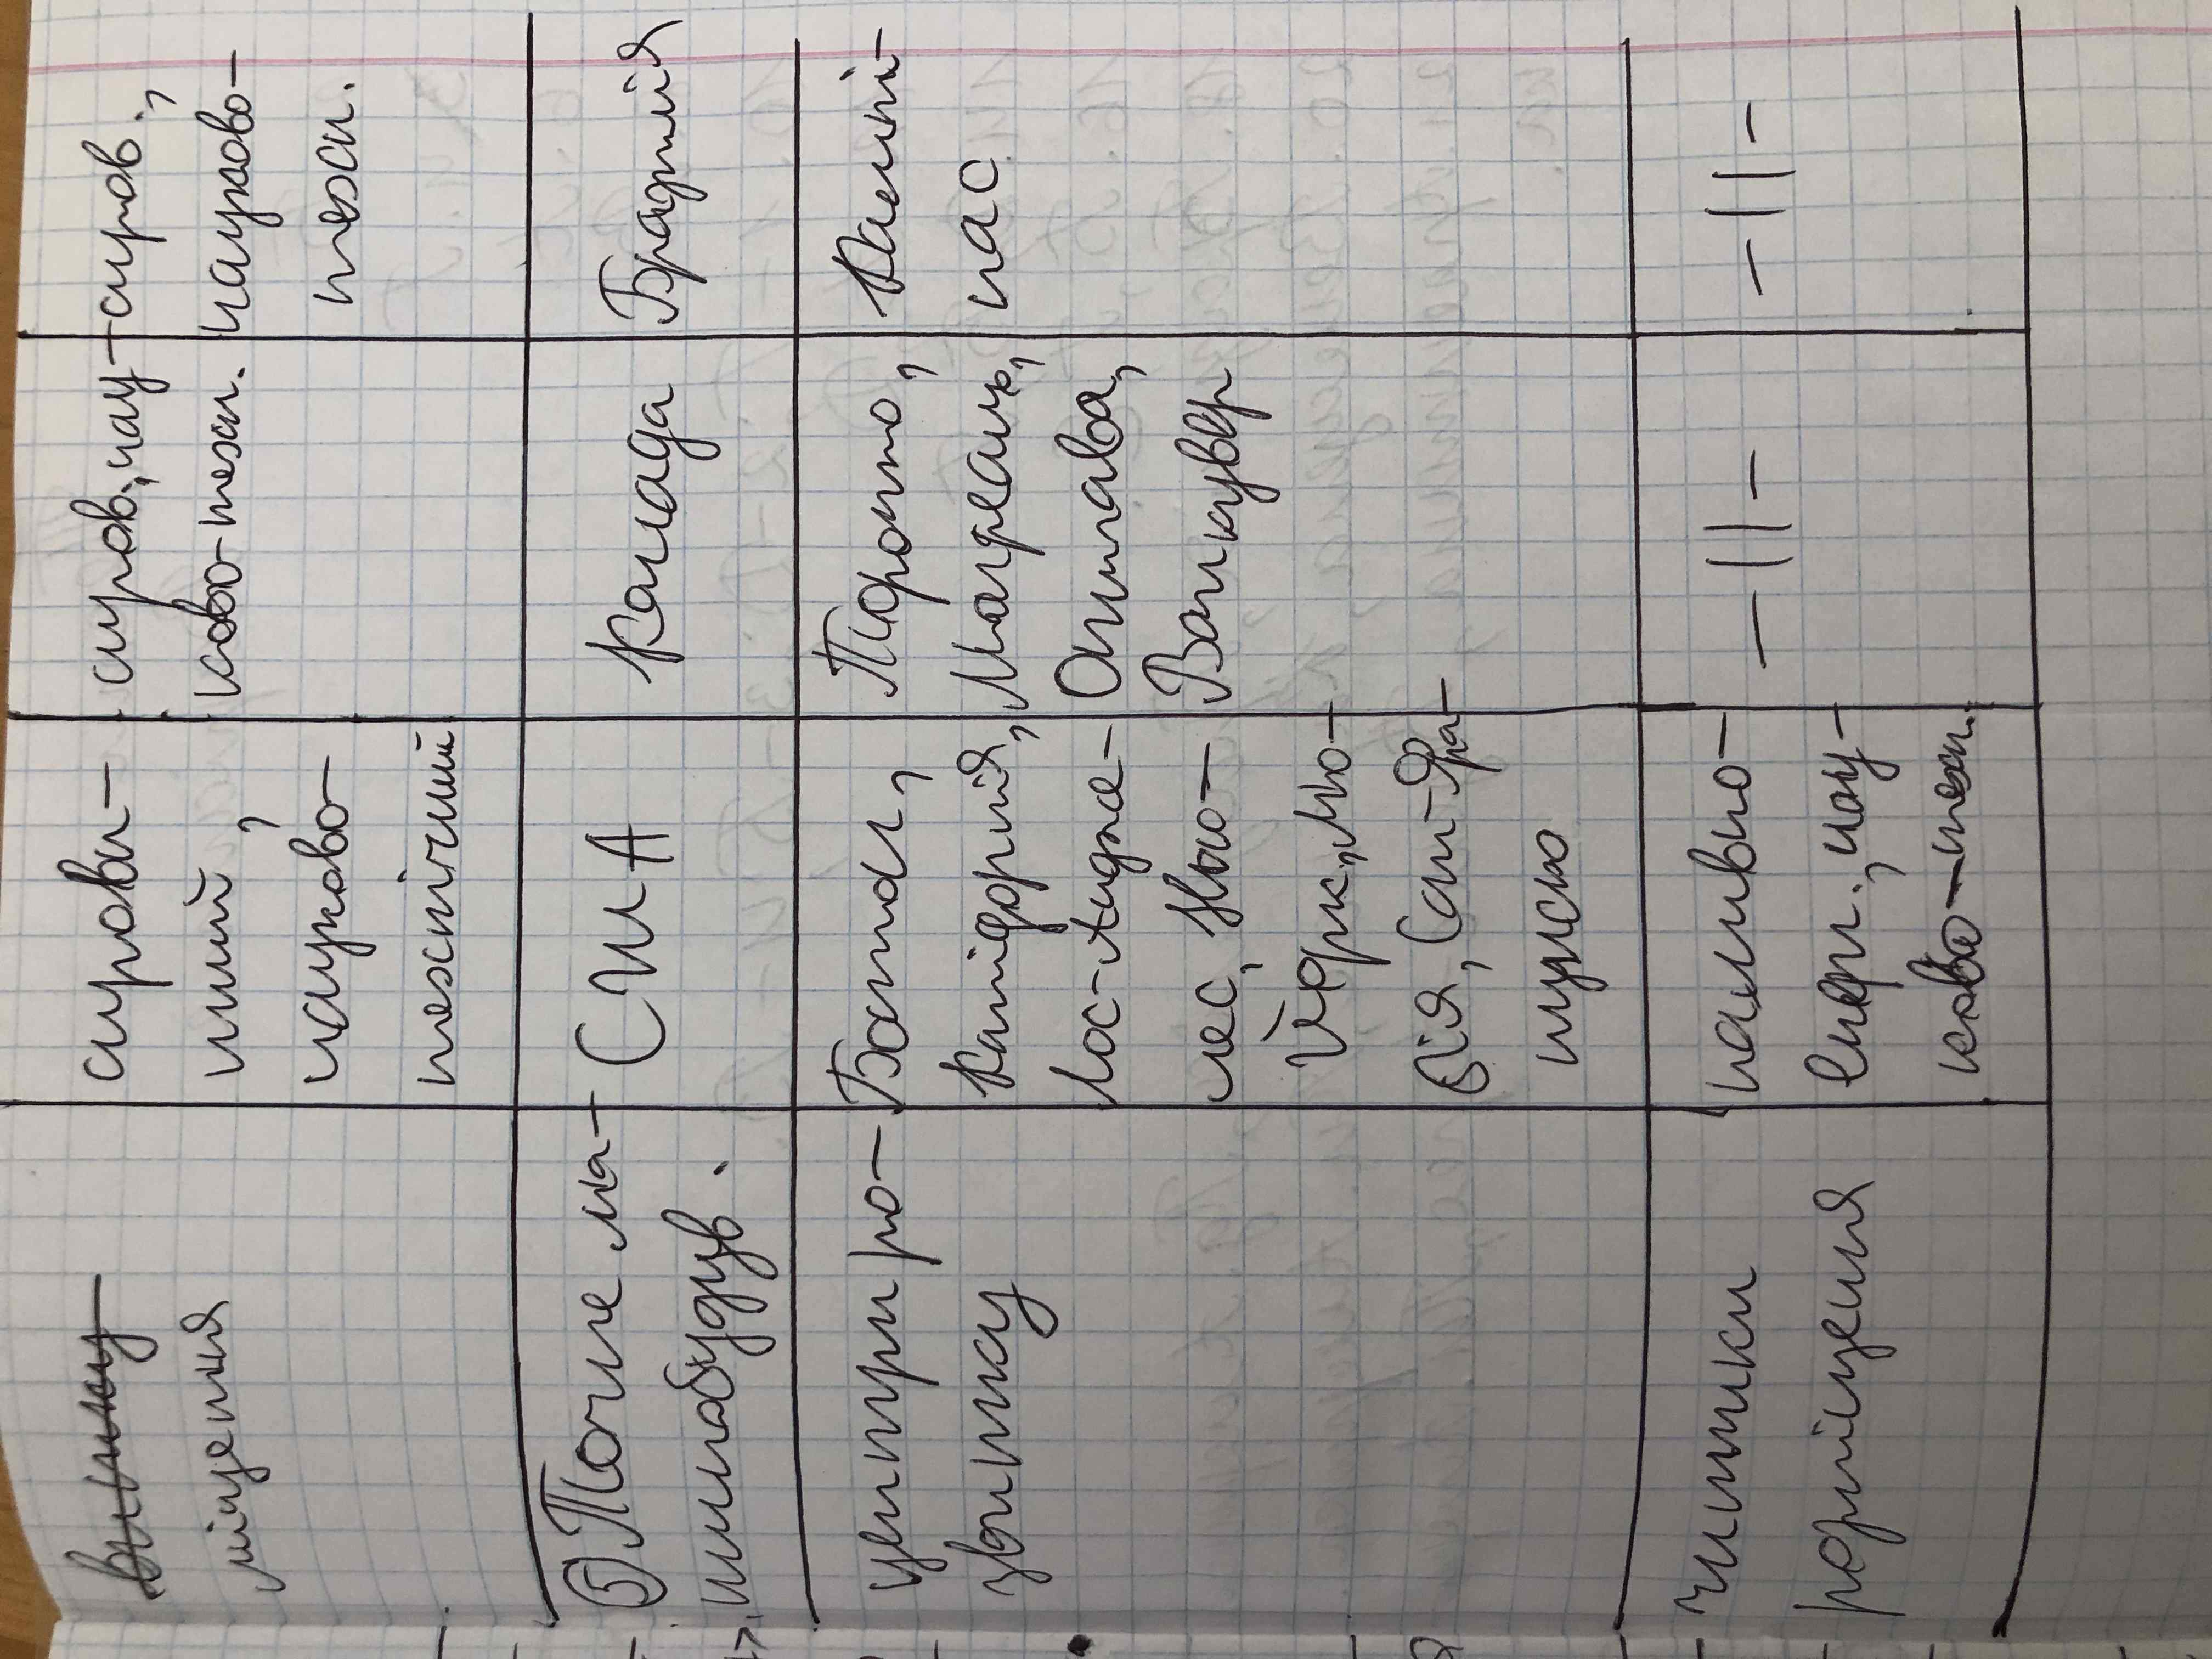 міщення
сирови-
нний,
науково-
технічний
сиров., нау-
ково-техн.
сиров.,
науково-
техн.
5) Точне ма-
шинобудув.
США
Канада
Бразилія
центри ро-
звитку
Бостон,
Каліфорнія,
Лос-Андже-
лес, Нью-
Йорк,
Сан-Фра-
нциско
Торонто,
Монреаль,
Оттава,
Ванкувер
Кампі-
нас
чинники
розміщення
паливно-
енерг., нау-
ково-техн.
-||-
-||-